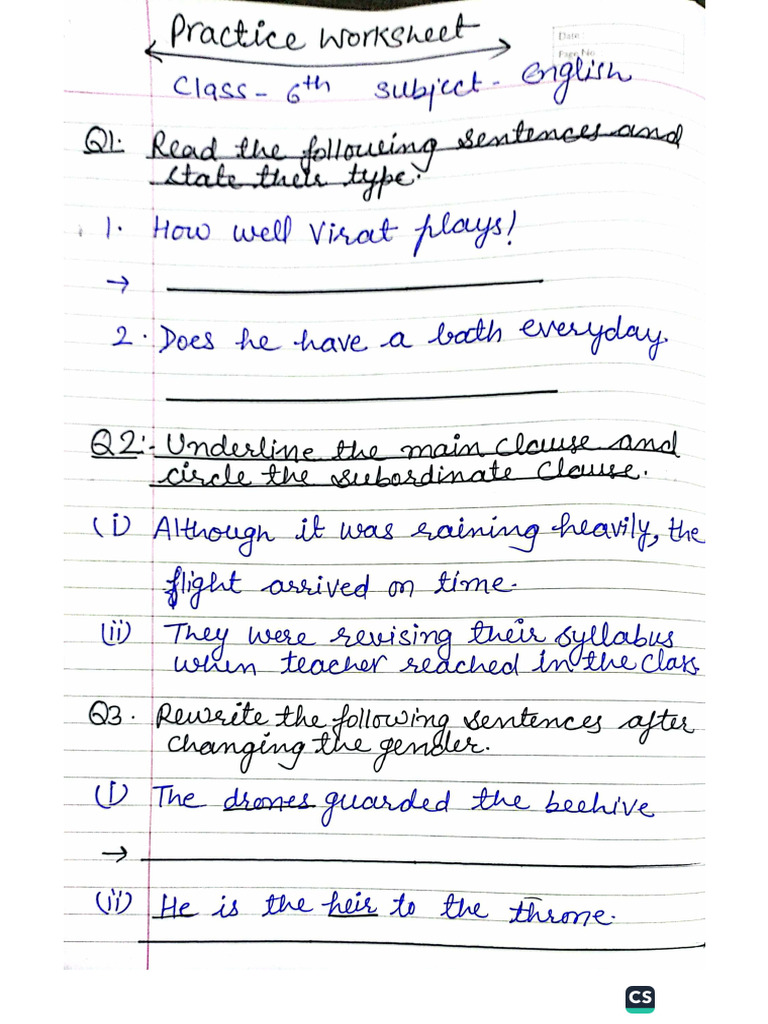 Practice Worksheet
Date :
Page No
Class - 6th Subject - English
Q1. Read the following sentences and
state their type.
1. How well Virat plays!
→
2. Does he have a bath everyday.
Q2:- Underline the main clause and
circle the subordinate clause.
(i) Although it was raining heavily, the
flight arrived on time.
(ii) They were revising their syllabus
when teacher reached in the class
Q3. Rewrite the following sentences after
changing the gender.
(I) The drones guarded the beehive
→
(ii) He is the heir to the throne.
CS